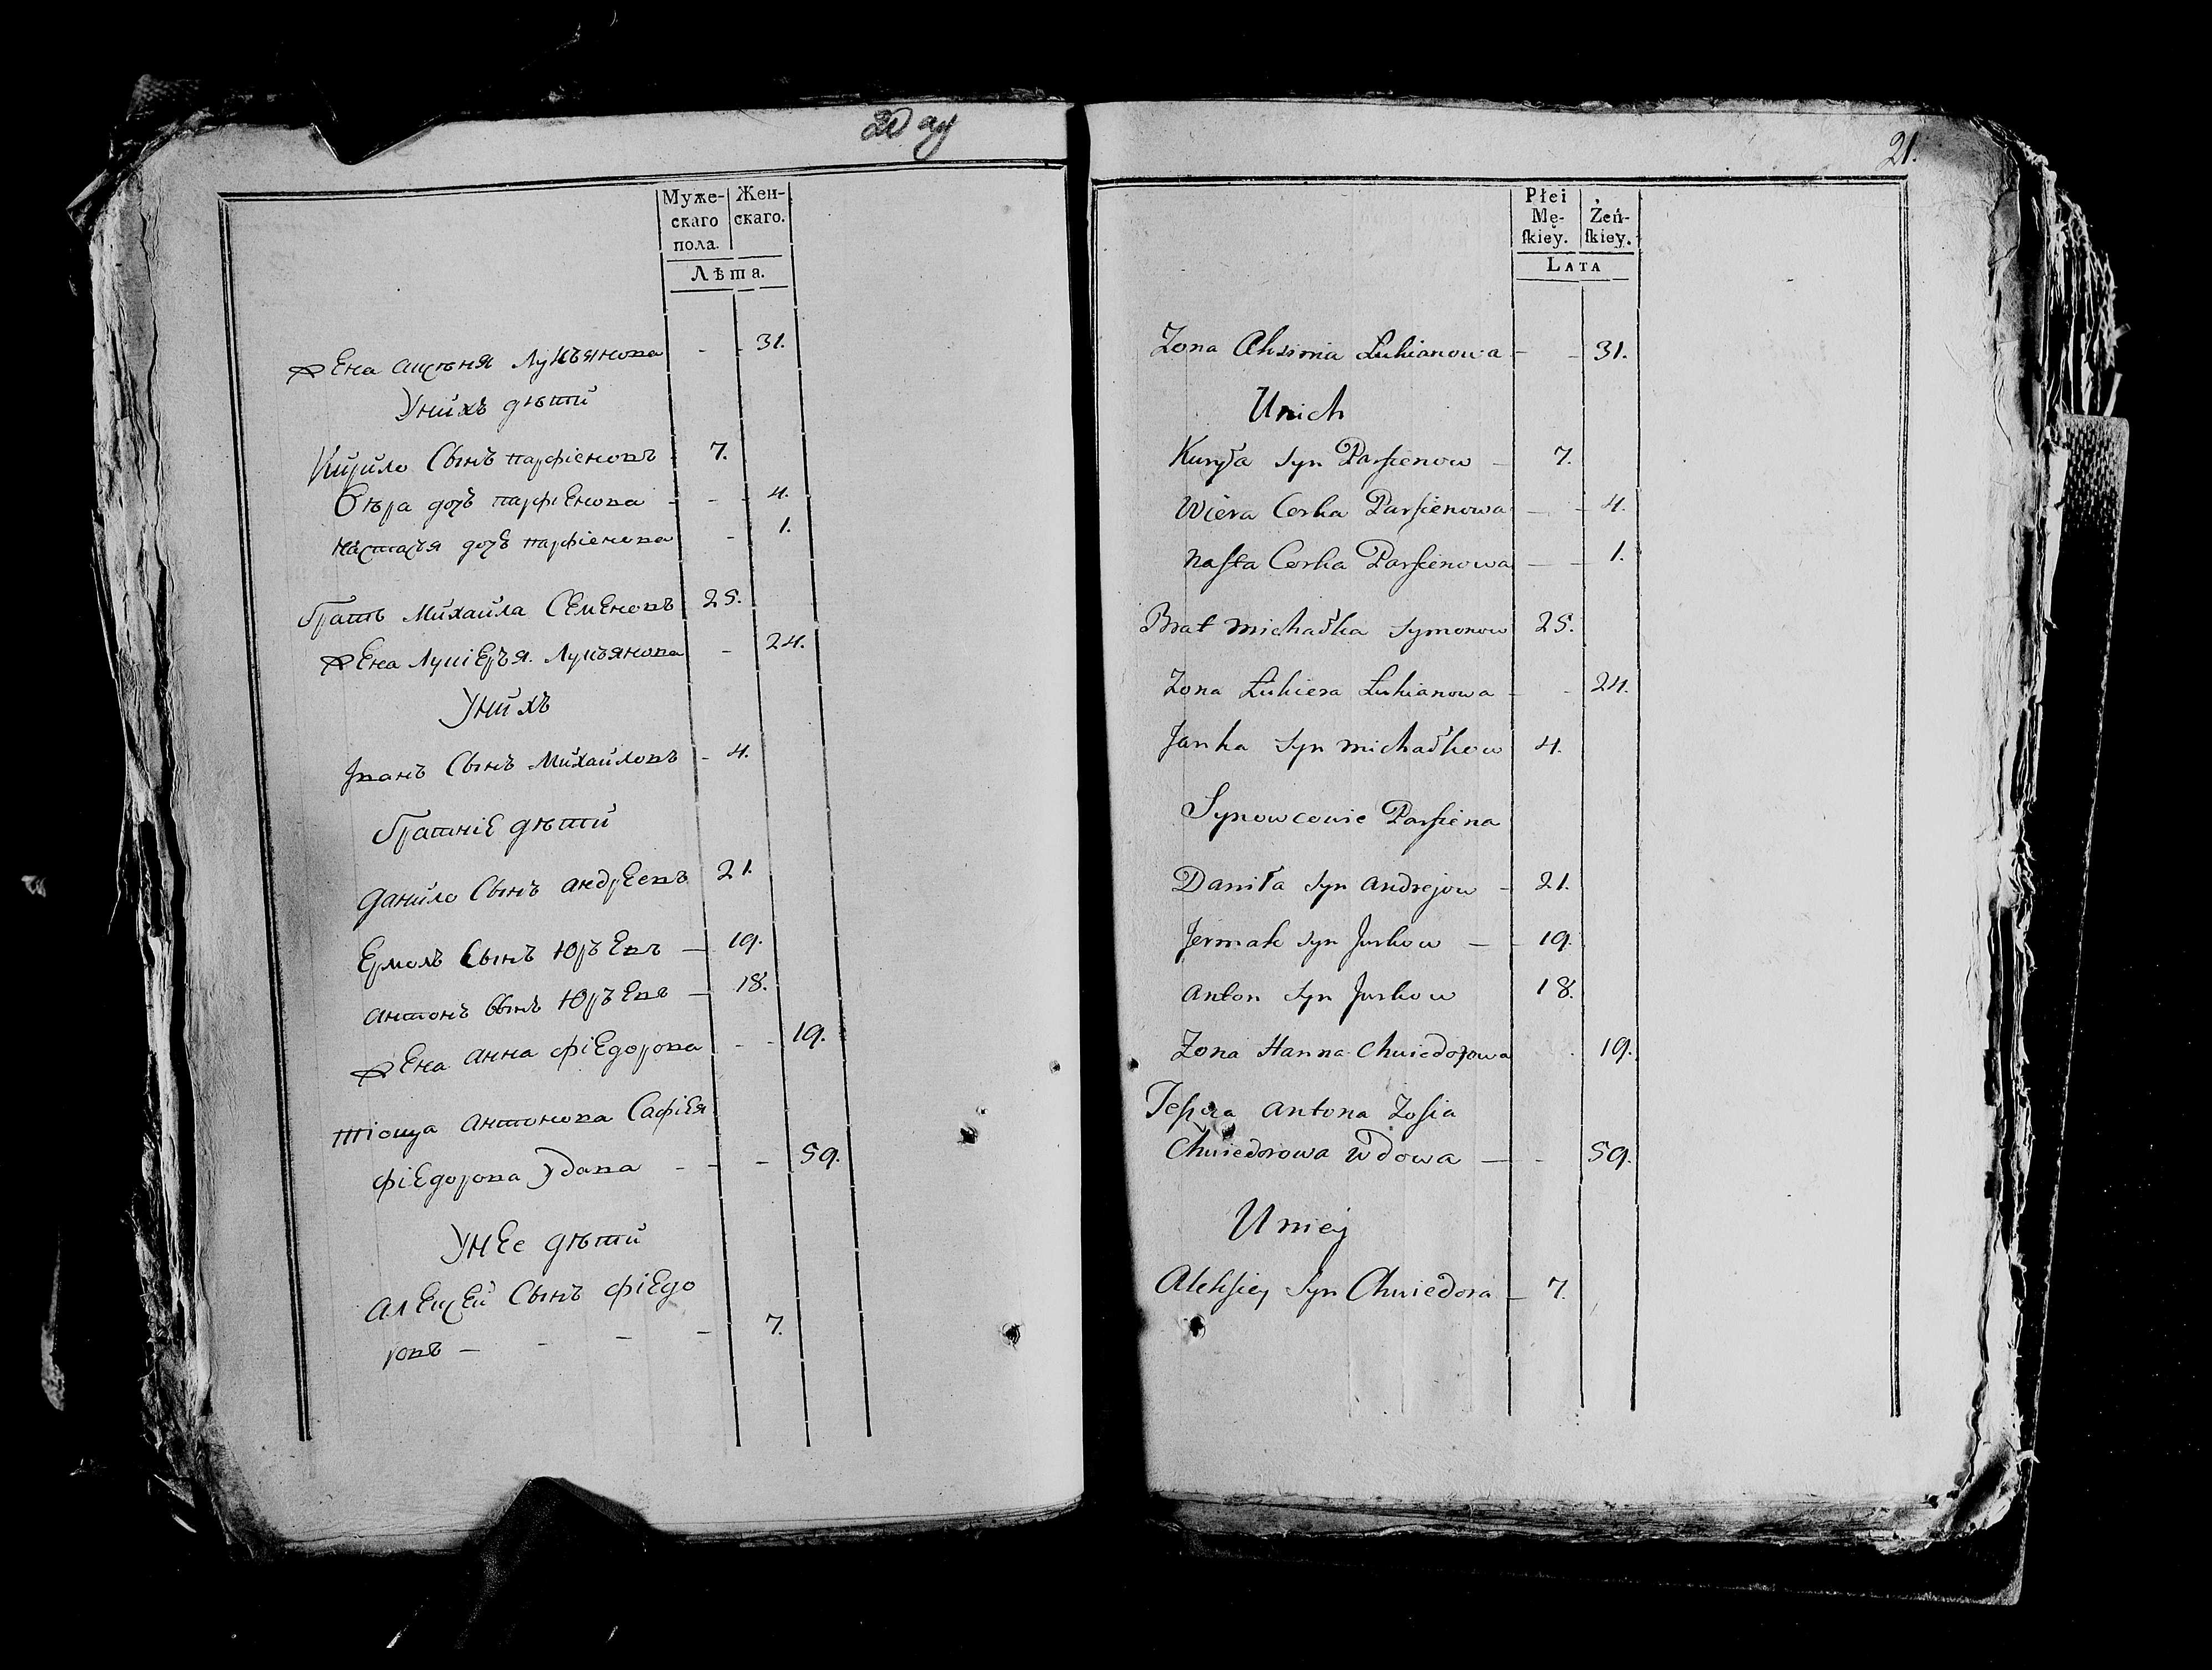 Муже-
скаго
пола.
Жен-
скаго.
Лѣта.
жена аксѣня Лукъянова - - 31.
Унихъ дѣти
Кирило Сынъ парфіеновъ 7.
Вѣра дочъ парфіенова - - - 4.
настасъя дочъ парфіенова - 1.
братъ Михайла Семеновъ 25.
жена Лукіеръя Лукъянова - 24.
Унихъ
Іванъ Сынъ Михайловъ - 4.
братніе дѣти
данило Сынъ андреевъ 21.
Ермолъ Сынъ Юръевъ — 19.
антонъ Сынъ Юръевъ — 18.
жена анна фіедорова - - 19.
тіоща антонова Сафіея
фіедорова Удава - - - 59.
Унее дѣти
алексей Сынъ фіедо
ровъ — - - — 7.
21.
Płci
Mę-
skiey.
Żeń-
skiey.
LATA
Zona Aksimia Łukianowa - - 31.
Unich
Kuryła Syn Parfienow - 7.
Wiera Corka Parfienowa - - 4.
nasta Corka Parfienowa - - 1.
Brat michałka Symonow 25.
Zona Łukiera Łukianowa - - 24.
Janka Syn michałkow 4.
Synowcowie Parfiena
Daniła Syn andrejow - 21.
Jermak Syn Jurkow - - 19.
anton Syn Jurkow 18.
Zona Hanna Chwiedorowa . 19.
antona Zosia
Chwiedorowa wdowa — - 59.
Uniej
Aleksiey Syn Chwiedora - 7.